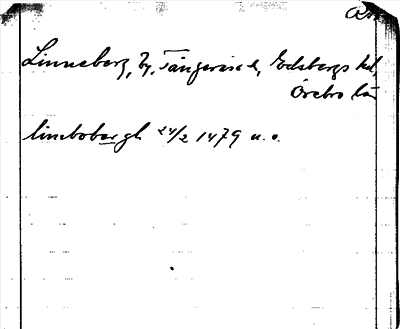 Linneberg, by, Tångeråsa sn, Edsbergs hd,
Örebro län
linebobergh 24/2 1479 u. o.